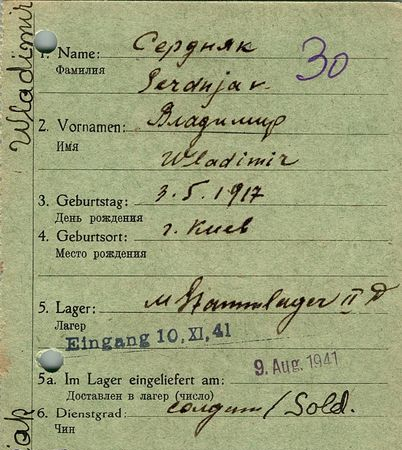 Wladimir
30
1. Name: Сердняк
Фамилия
Serdnjak
2. Vornamen: Владимир
Имя
Wladimir
3. Geburtstag: 3.5.1917
День рождения
4. Geburtsort: г. Киев
Место рождения
5. Lager: M Stammlager II D
Лагер
Eingang 10.XI.41
9. Aug. 1941
5a. Im Lager eingeliefert am:
Доставлен в лагер (число)
6. Dienstgrad: солдат / Sold.
Чин